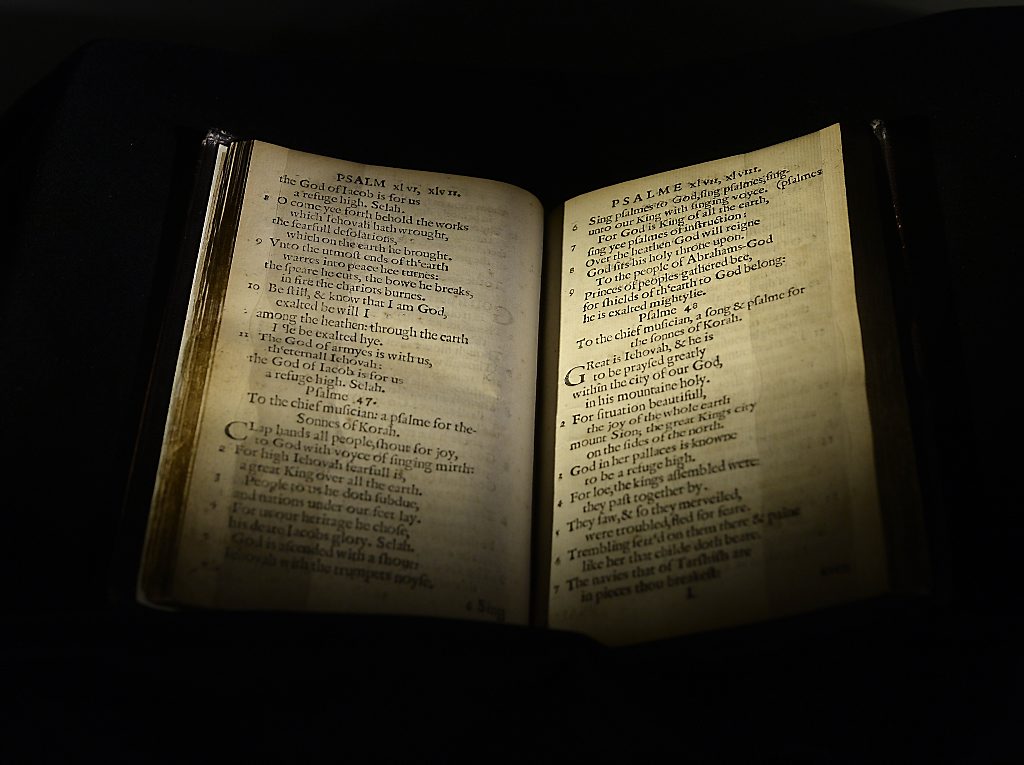 PSALM xlvi, xlvii.
the God of Iacob is for us
a refuge high. Selah.
8 O come yee forth behold the works
which Iehovah hath wrought,
the fearfull desolations,
which on the earth he brought.
9 Vnto the utmost ends of th'earth
warres into peace hee turnes:
the speare he cuts, the bowe he breaks,
in fire the chariots burnes.
10 Be still, & know that I am God,
exalted be will I
among the heathen: through the earth
I'le be exalted hye.
11 The God of armyes is with us,
th'eternall Iehovah:
the God of Iacob is for us
a refuge high. Selah.
Psalme 47.
To the chief musician: a psalme for the
Sonnes of Korah.
CLap hands all people, shout for joy,
to God with voyce of singing mirth:
2 For high Iehovah fearfull is,
a great King over all the earth.
3 People to us he doth subdue,
and nations under our feet lay.
4 For us our heritage he chose,
his deare Iacobs glory. Selah.
5 God is ascended with a shout:
Iehovah with the trumpets noyse.
6 Sing
PSALME xlvii, xlviii.
6 Sing psalmes to God, sing psalmes, sing.
unto our King with singing voyce. (psalmes
7 For God is King of all the earth,
sing yee psalmes of instruction:
8 Over the heathen God will reigne
God sits his holy throne upon.
9 To the people of Abrahams-God
Princes of peoples gathered bee,
for shields of th'earth to God belong:
he is exalted mightylie.
Psalme 48
To the chief musician, a song & psalme for
the sonnes of Korah.
GReat is Iehovah, & he is
to be praysed greatly
within the city of our God,
in his mountaine holy.
2 For situation beautifull,
the joy of the whole earth
mount Sion; the great Kings city
on the sides of the north.
3 God in her pallaces is knowne
to be a refuge high.
4 For loe, the kings assembled were:
they past together by.
5 They saw, & so they merveiled,
were troubled, fled for feare.
6 Trembling seiz'd on them there & paine
like her that childe doth beare.
7 The navies that of Tarshish are
in pieces thou breakest: